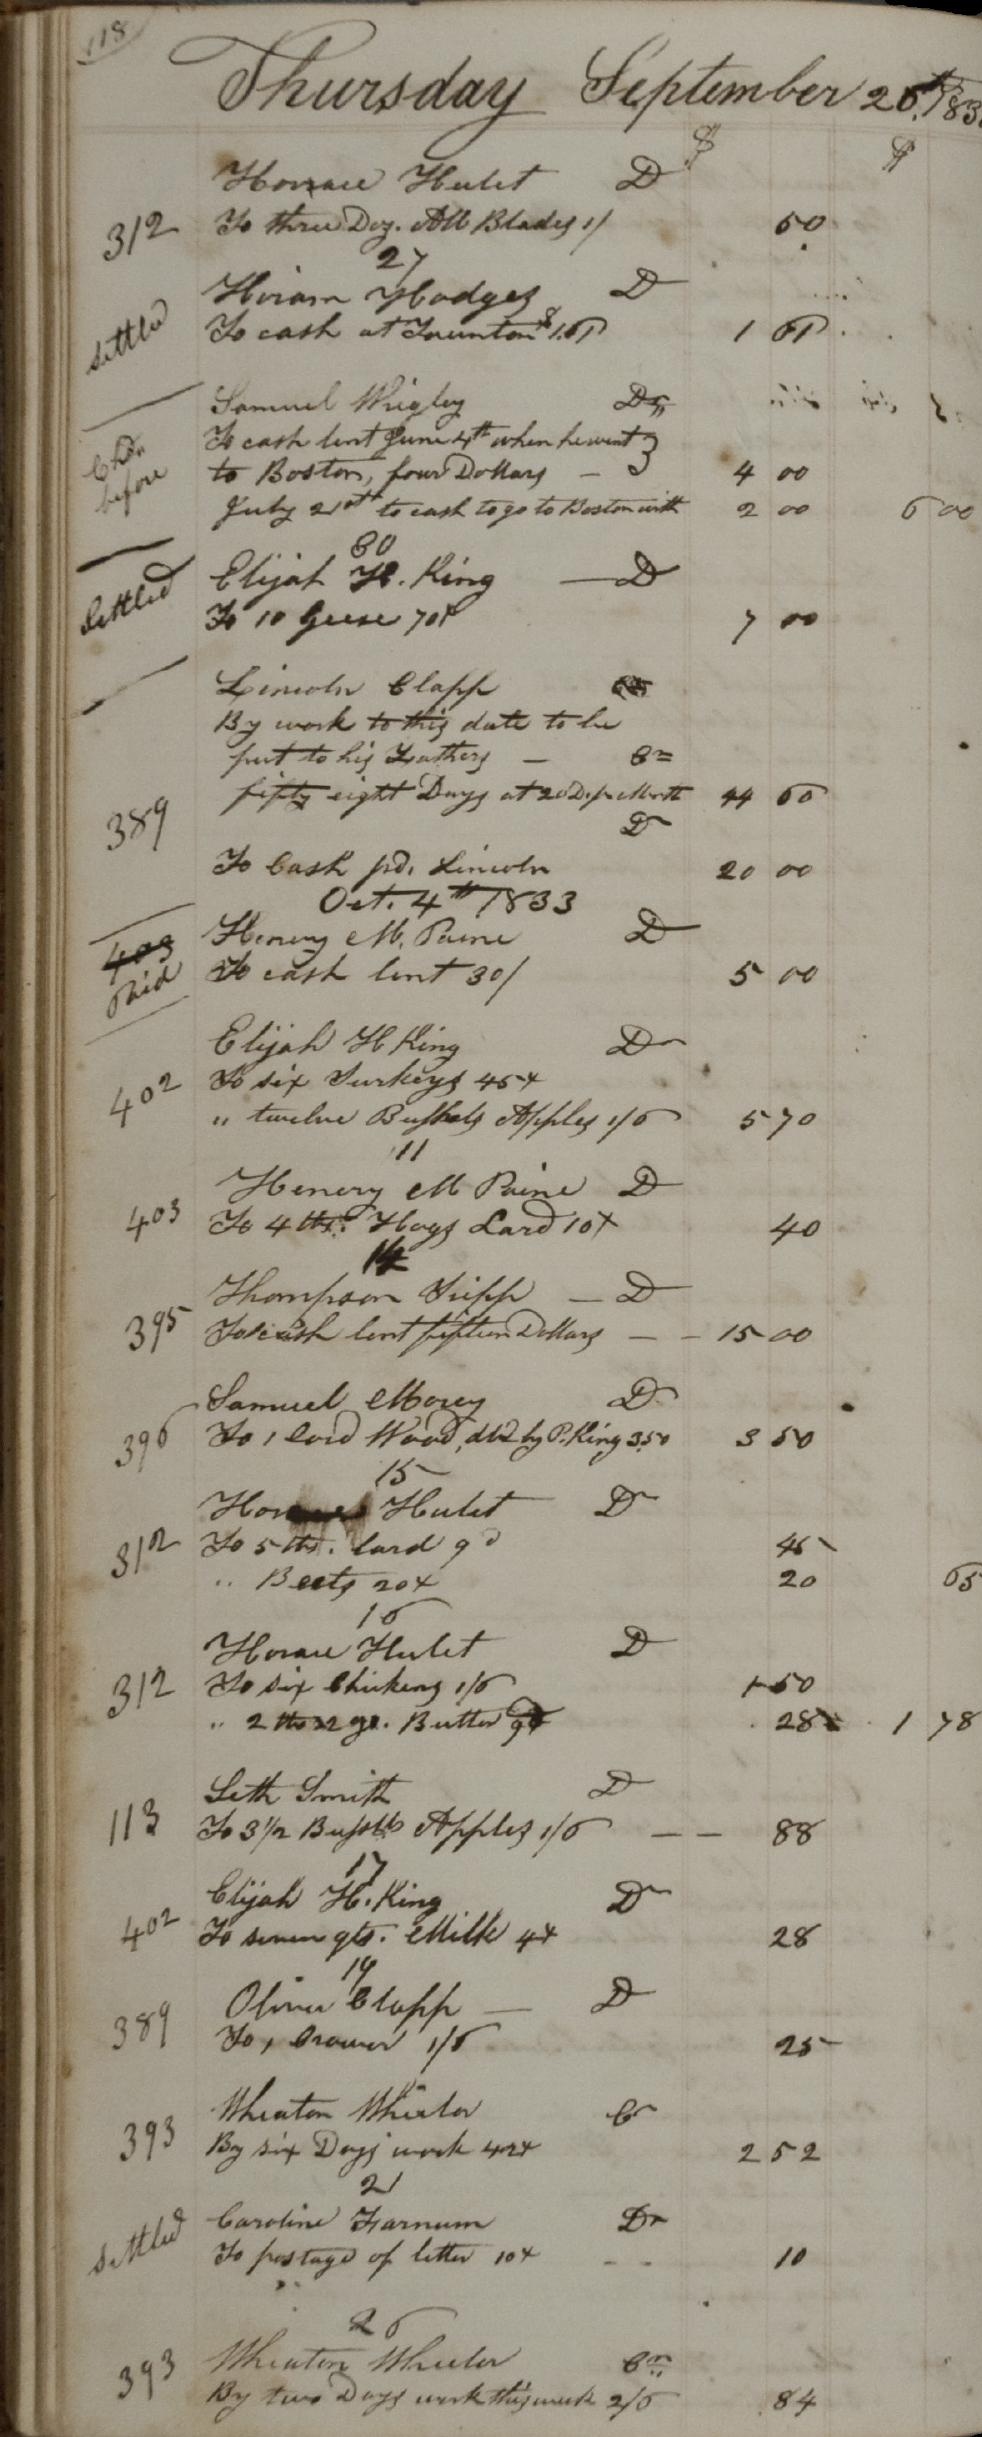 118
Thursday September 26th 183
$ $
Horace Hulet D
312 To three Doz. All Blades 1/ 50
27
Hiram Hodges D
settled To cash at Taunton $1.61 1 61
Samuel Wrigley Dr
Chd. before To cash lent June 4th when he went
to Boston, four Dollars — 4 00
July 21st to cash to go to Boston with 2 00 6 00
30
Elijah H. King — D
Settled To 10 Geese 70 7 00
Lincoln Clapp
By work to this date to be
put to his Fathers — Cr
389 fifty eight Days at 20 D. per Month 44 60
D
To Cash pd. Lincoln 20 00
Oct. 4th 1833
Henery M. Paine D
403 Paid To cash lent 30/ 5 00
Elijah H King Dr
402 To six Turkeys 45
" twelve Bushels Apples 1/6 5 70
11
Henery M Paine D
403 To 4 lbs. Hogs Lard 10 40
14
Thompson Tripp — D
395 To cash lent fifteen Dollars — — 15 00
Samuel Morey D
396 To 1 Cord Wood, dld by P. King 3.50 3 50
15
Horace Hulet D
312 To 5 lbs. lard 9d 45
" Beets 20 20 65
16
Horace Hulet D
312 To six Chickens 1/6 1 50
" 2 lbs 2 qr. Butter 28 1 78
Seth Smith D
113 To 3 1/2 Bushls Apples 1/6 — — 88
17
Elijah H. King D
402 To seven qts. Milk 4 28
19
Oliver Clapp — D
389 To 1 1/6 25
"
Wheaton Wheeler Cr
393 By six Days work 42 2 52
21
Caroline Farnum Dr
settled To postage of letter 10 - - 10
26
Wheaton Wheeler Cr
393 By two Days work this week 2/6 84